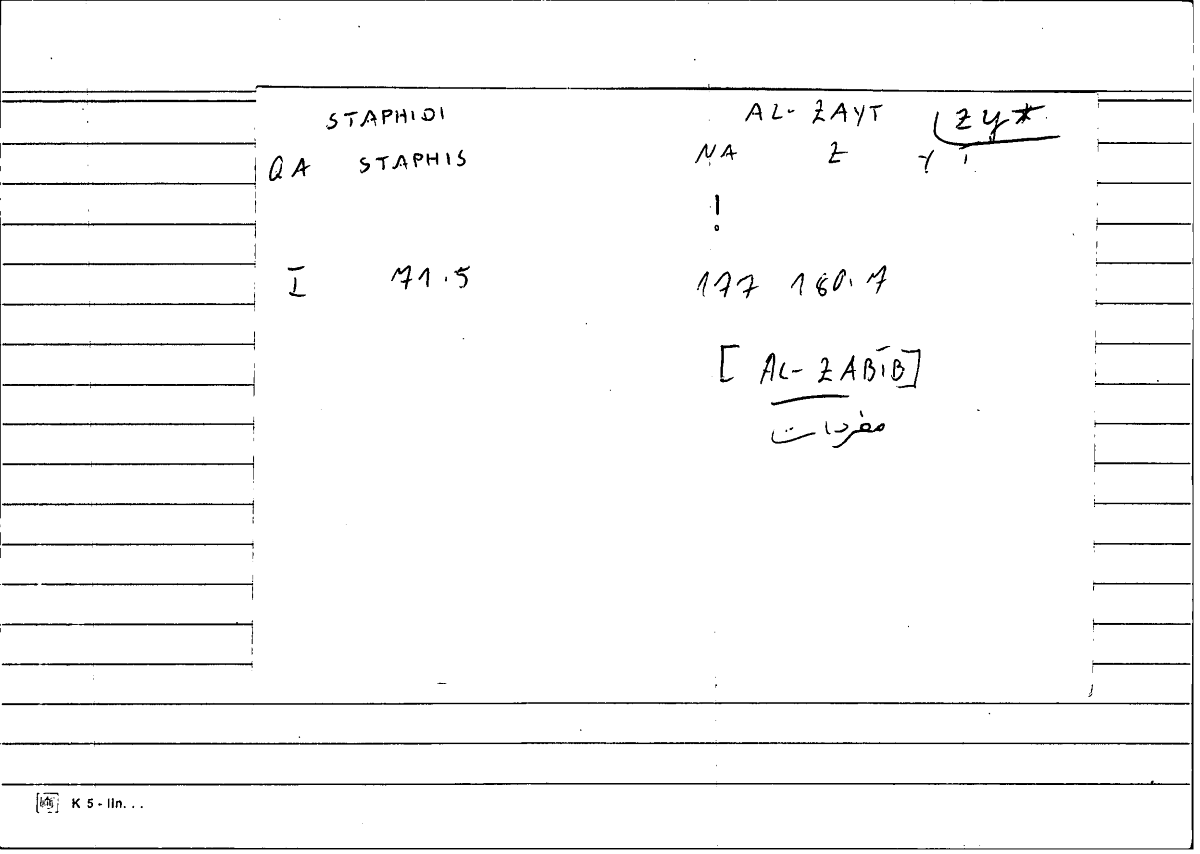 STAPHIDI AL- ZAYT zy*
QA STAPHIS NA Z Y
!
I 71.5 177 180.7
[ AL- ZABĪB]
مفردات
K 5 - lin. . .